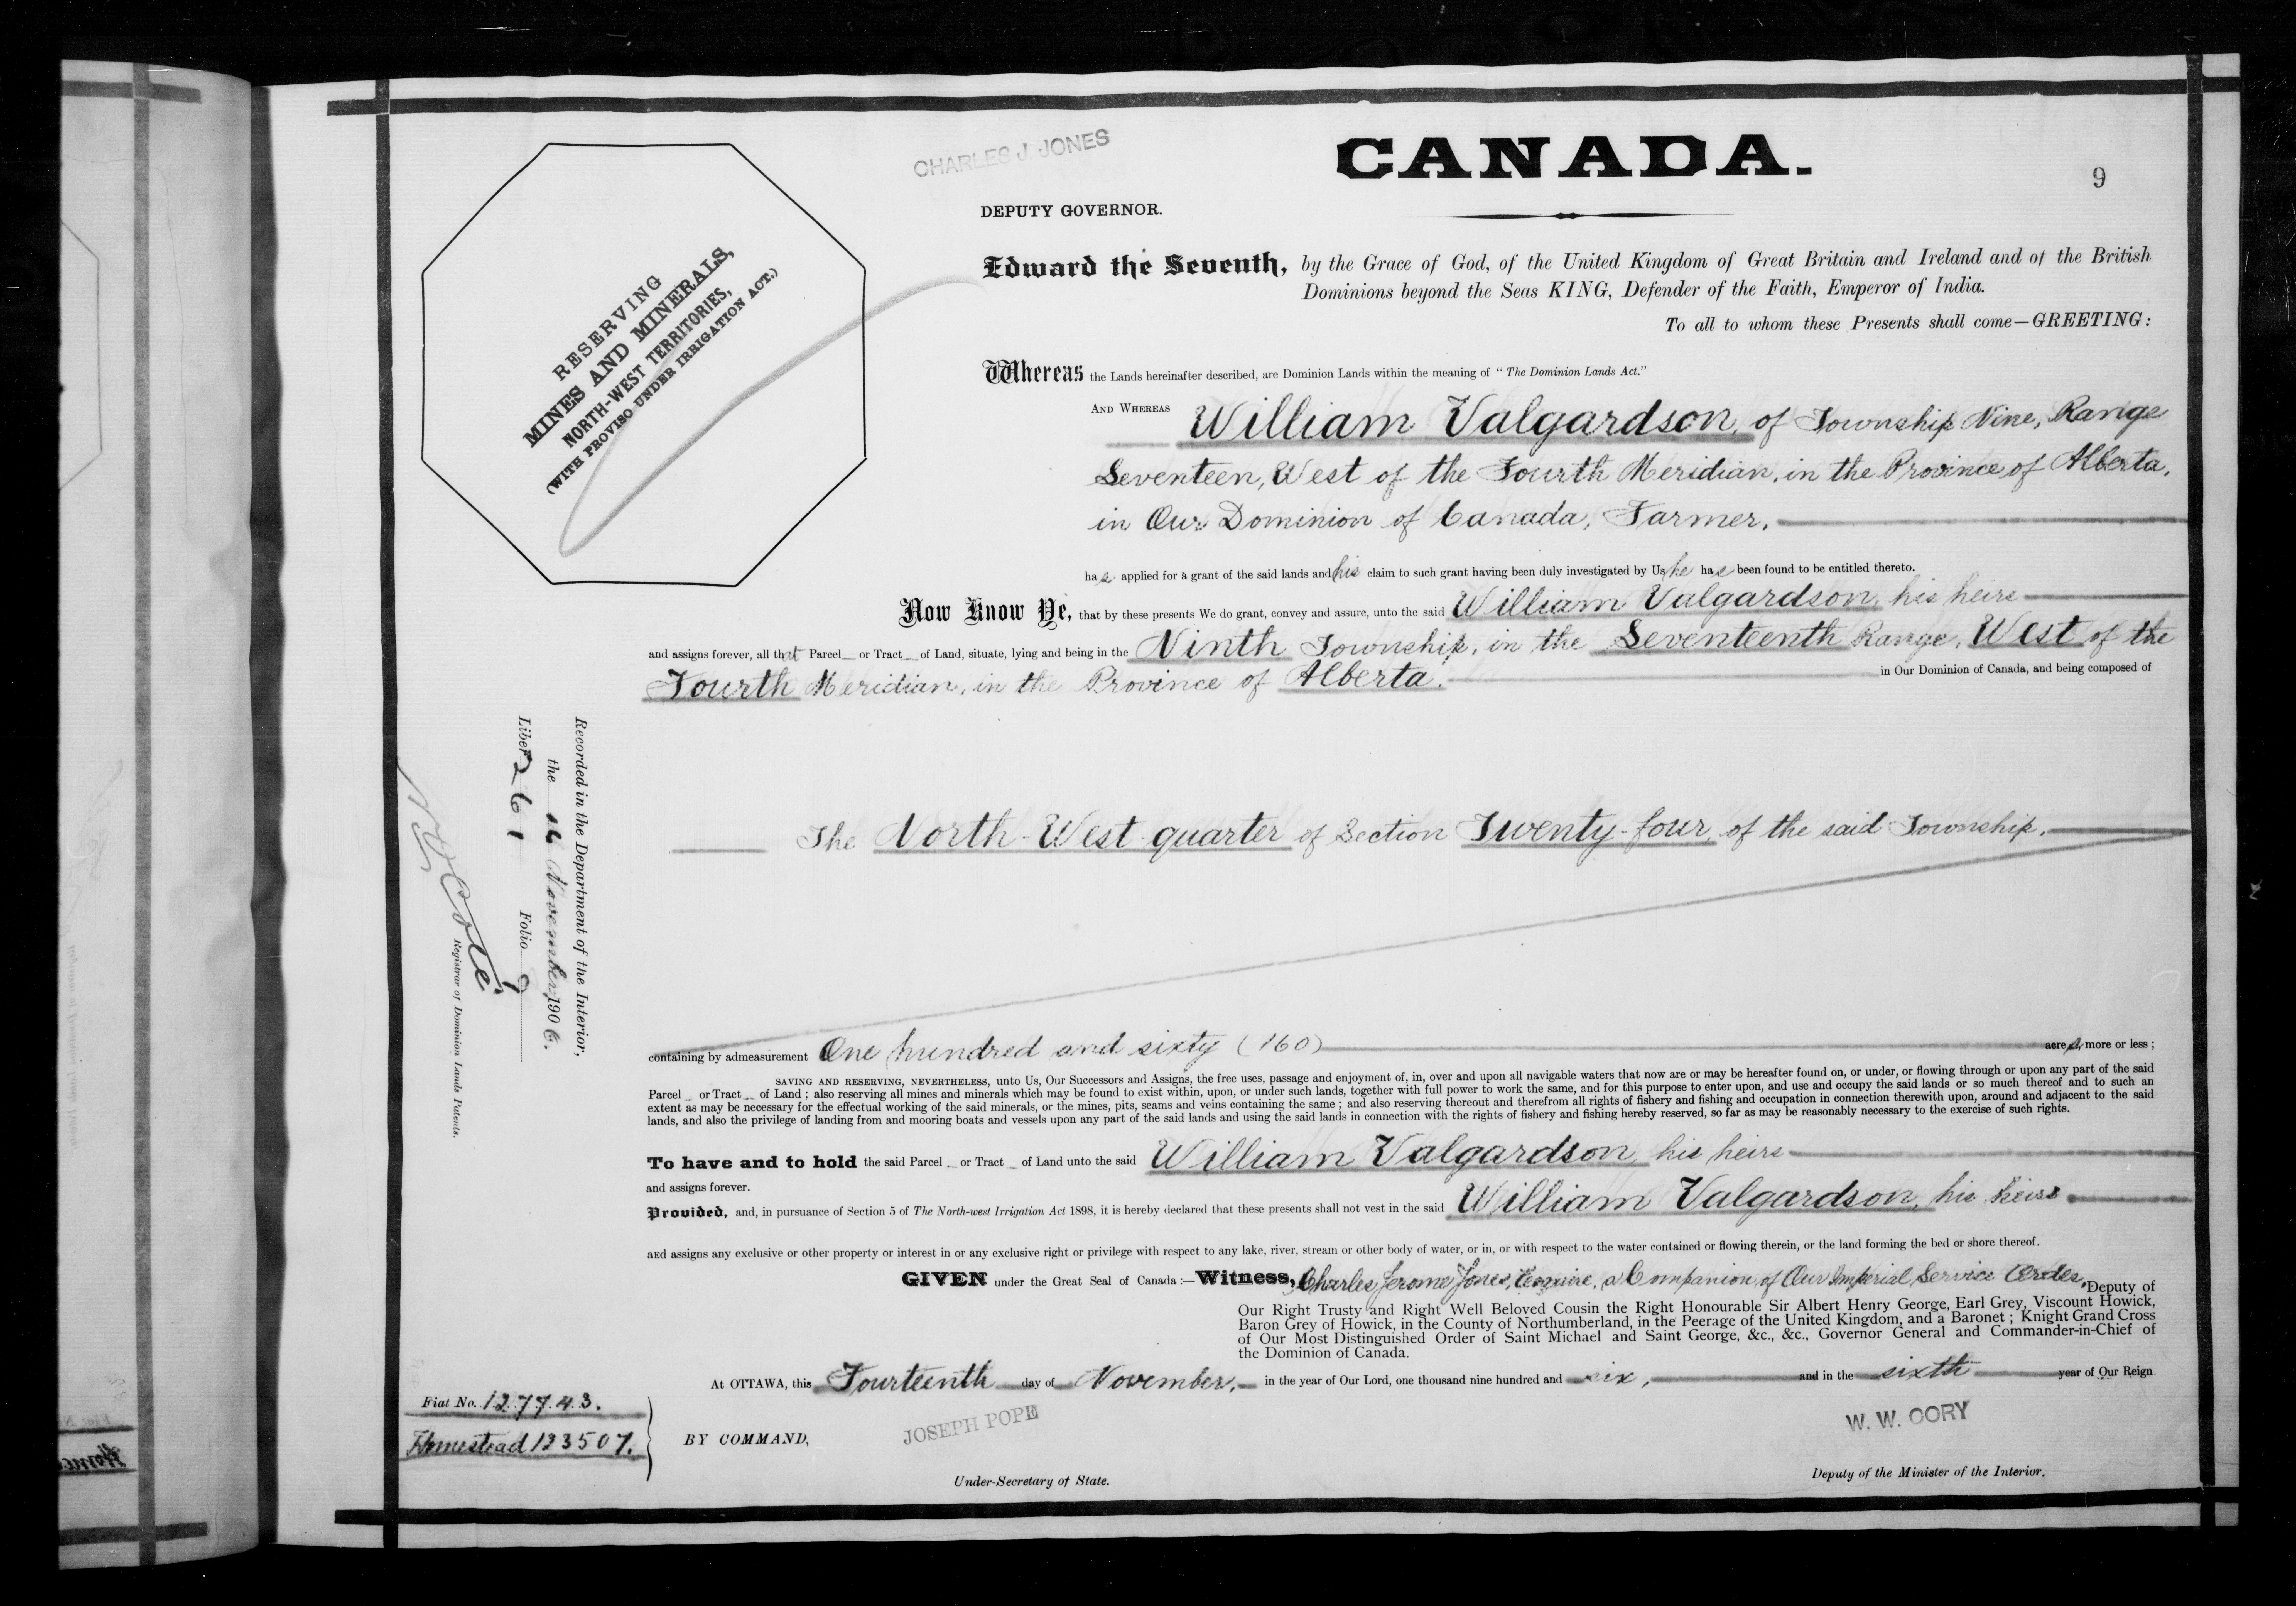 CHARLES J. JONES
CANADA.
9
DEPUTY GOVERNOR.
RESERVING
MINES AND MINERALS,
NORTH-WEST TERRITORIES,
(WITH PROVISO UNDER IRRIGATION ACT.)
Edward the Seventh, by the Grace of God, of the United Kingdom of Great Britain and Ireland and of the British
Dominions beyond the Seas KING, Defender of the Faith, Emperor of India.
To all to whom these Presents shall come—GREETING:
Whereas the Lands hereinafter described, are Dominion Lands within the meaning of "The Dominion Lands Act."
AND WHEREAS William Valgardson, of Township Nine, Range
Seventeen, West of the Fourth Meridian, in the Province of Alberta,
in Our Dominion of Canada, Farmer,
has applied for a grant of the said lands and his claim to such grant having been duly investigated by Us he has been found to be entitled thereto.
Now Know Ye, that by these presents We do grant, convey and assure, unto the said William Valgardson, his heirs
and assigns forever, all that Parcel or Tract of Land, situate, lying and being in the Ninth Township, in the Seventeenth Range, West of the
Fourth Meridian, in the Province of Alberta, in Our Dominion of Canada, and being composed of
The North-West quarter of Section Twenty-four, of the said Township,
Recorded in the Department of the Interior,
the 14 November, 1906.
Liber 261 Folio 9
N O Coté
Registrar of Dominion Lands Patents.
containing by admeasurement One hundred and sixty (160) acres, more or less;
SAVING AND RESERVING, NEVERTHELESS, unto Us, Our Successors and Assigns, the free uses, passage and enjoyment of, in, over and upon all navigable waters that now are or may be hereafter found on, or under, or flowing through or upon any part of the said
Parcel or Tract of Land; also reserving all mines and minerals which may be found to exist within, upon, or under such lands, together with full power to work the same, and for this purpose to enter upon, and use and occupy the said lands or so much thereof and to such an
extent as may be necessary for the effectual working of the said minerals, or the mines, pits, seams and veins containing the same; and also reserving thereout and therefrom all rights of fishery and fishing and occupation in connection therewith upon, around and adjacent to the said
lands, and also the privilege of landing from and mooring boats and vessels upon any part of the said lands and using the said lands in connection with the rights of fishery and fishing hereby reserved, so far as may be reasonably necessary to the exercise of such rights.
To have and to hold the said Parcel or Tract of Land unto the said William Valgardson, his heirs
and assigns forever.
Provided, and, in pursuance of Section 5 of The North-west Irrigation Act 1898, it is hereby declared that these presents shall not vest in the said William Valgardson, his heirs
and assigns any exclusive or other property or interest in or any exclusive right or privilege with respect to any lake, river, stream or other body of water, or in, or with respect to the water contained or flowing therein, or the land forming the bed or shore thereof.
GIVEN under the Great Seal of Canada:—Witness, Charles Jerome Jones, Esquire, a Companion of Our Imperial Service Order, Deputy of
Our Right Trusty and Right Well Beloved Cousin the Right Honourable Sir Albert Henry George, Earl Grey, Viscount Howick,
Baron Grey of Howick, in the County of Northumberland, in the Peerage of the United Kingdom, and a Baronet; Knight Grand Cross
of Our Most Distinguished Order of Saint Michael and Saint George, &c., &c., Governor General and Commander-in-Chief of
the Dominion of Canada.
At OTTAWA, this Fourteenth day of November, in the year of Our Lord, one thousand nine hundred and six, and in the sixth year of Our Reign
Fiat No. 127743.
Homestead 123507.
BY COMMAND,
JOSEPH POPE
Under-Secretary of State.
W. W. CORY
Deputy of the Minister of the Interior.